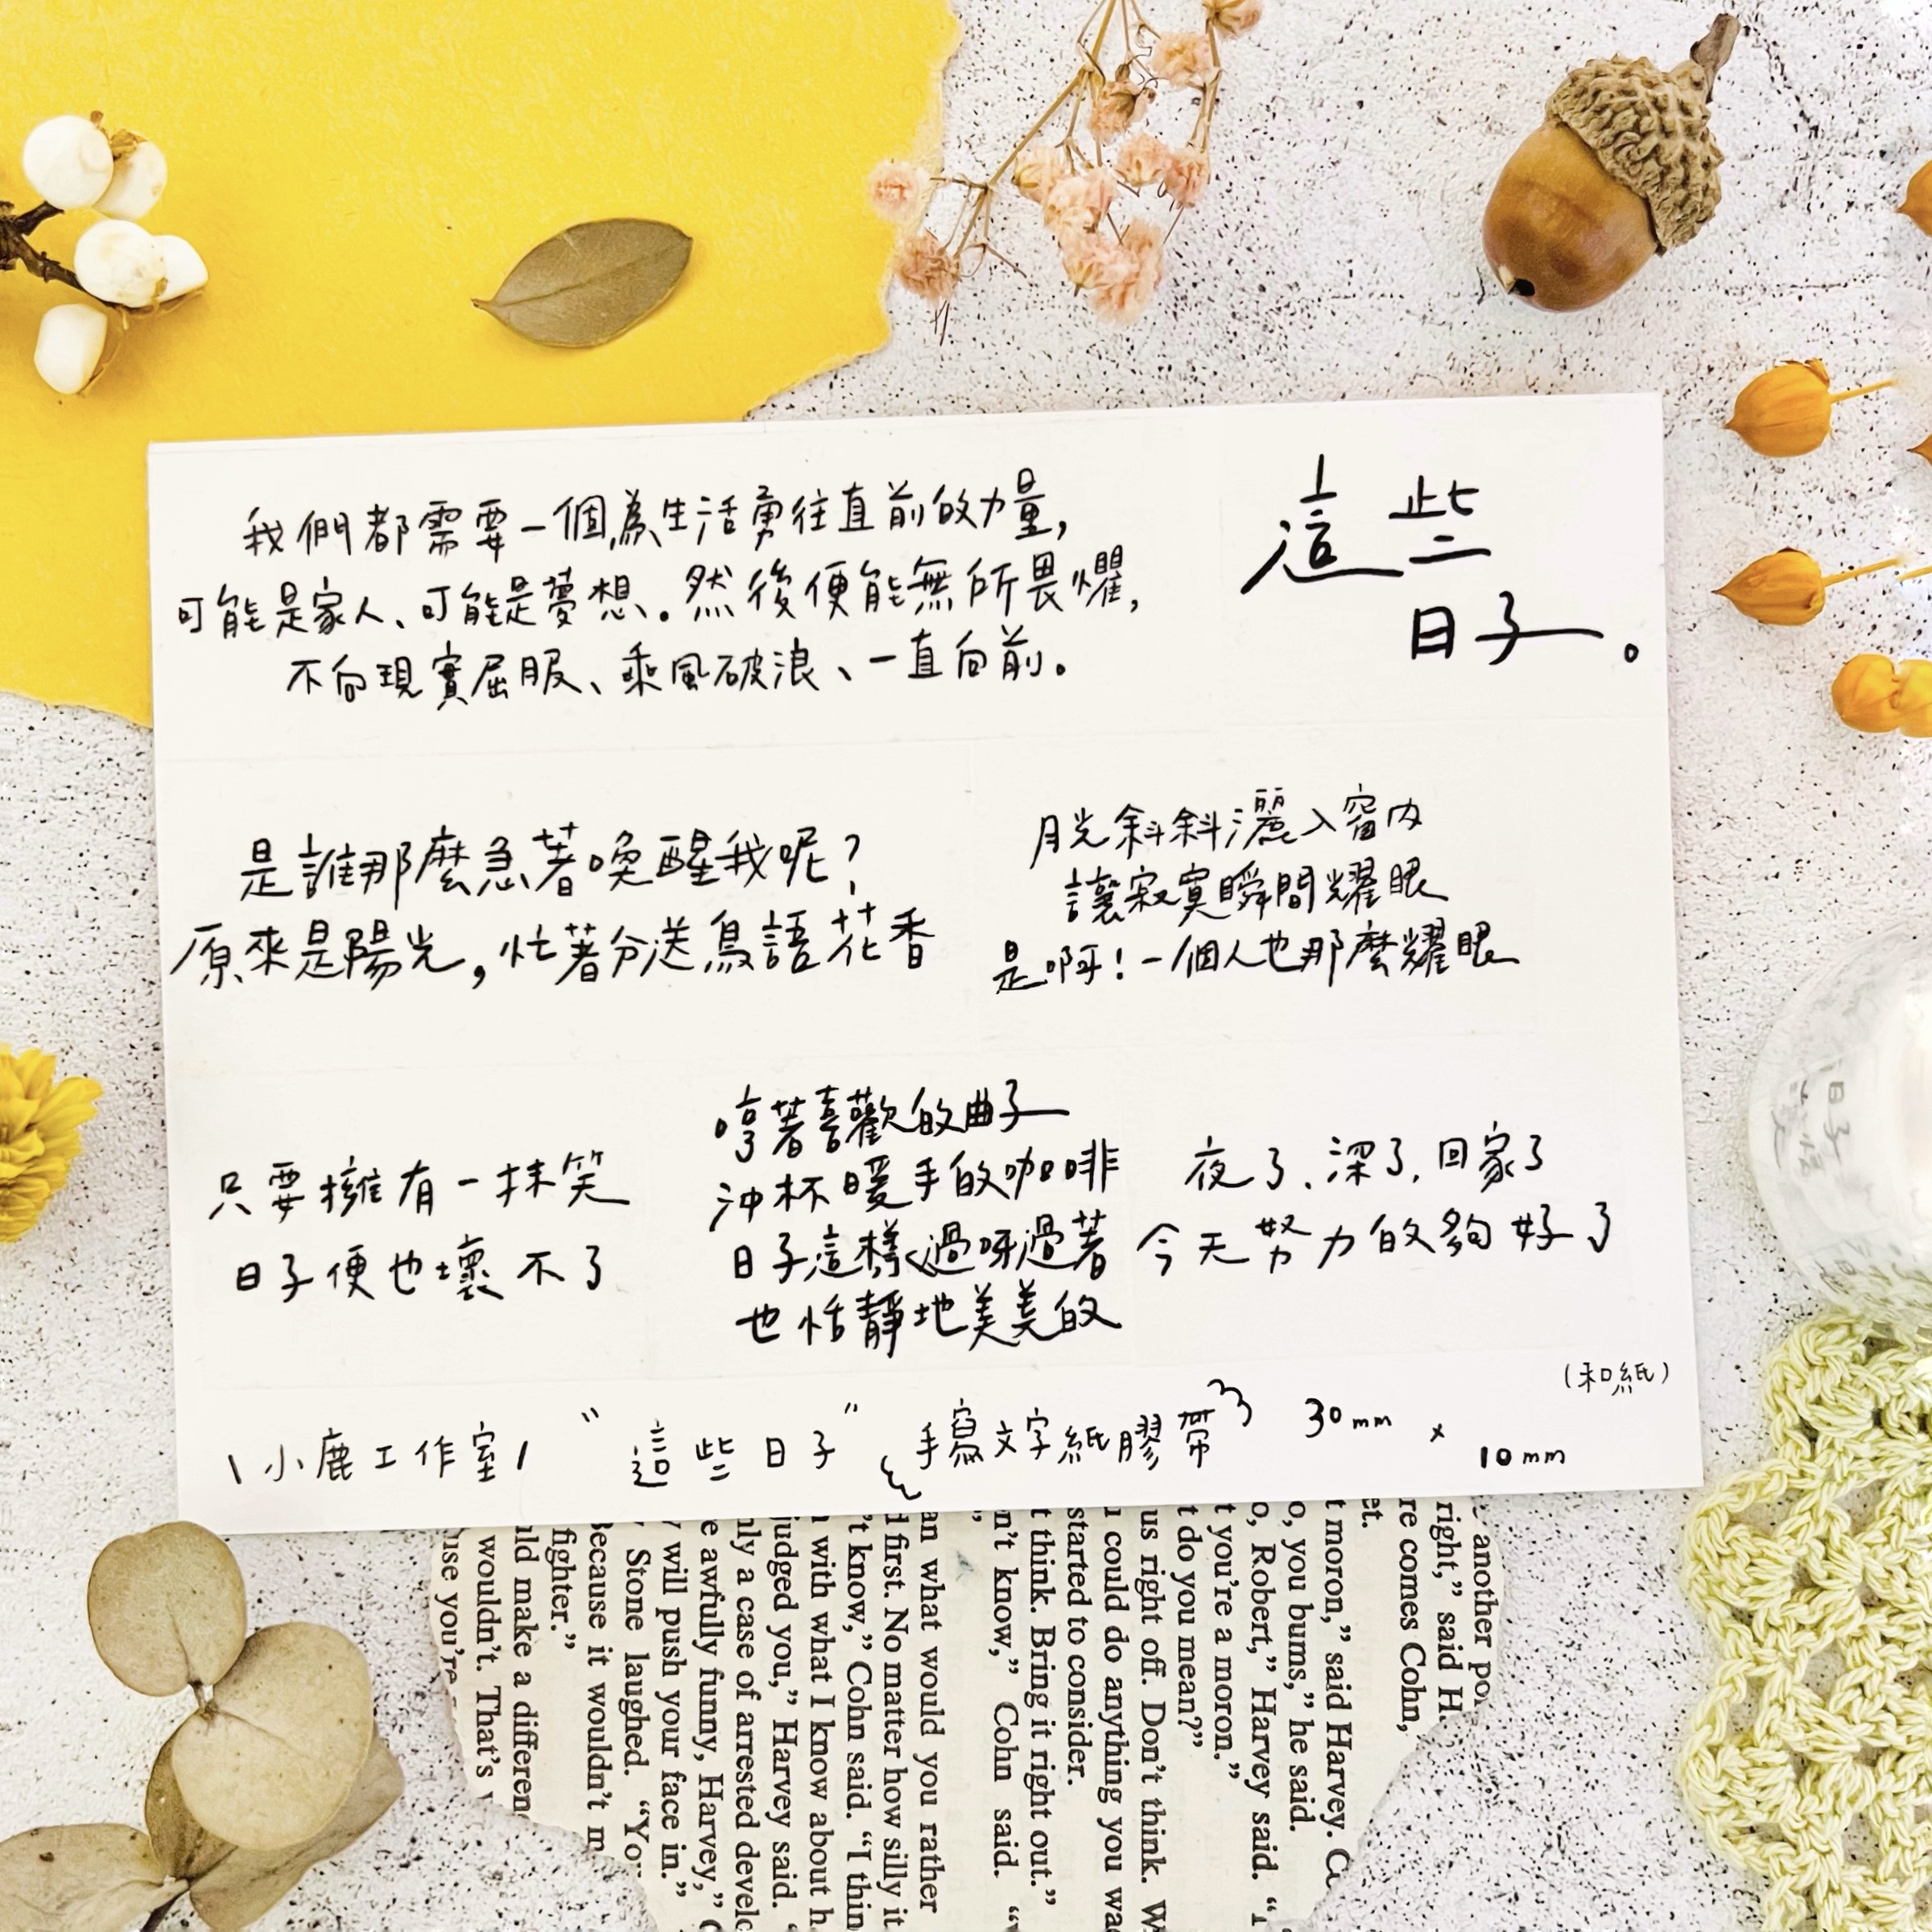 我們都需要一個為生活勇往直前的力量,
可能是家人、可能是夢想。然後便能無所畏懼,
不向現實屈服、乘風破浪、一直向前。
這些
日子。
是誰那麼急著喚醒我呢?
原來是陽光,忙著分送鳥語花香
月光斜斜灑入窗內
讓寂寞瞬間耀眼
是啊!一個人也那麼耀眼
只要擁有一抹笑
日子便也壞不了
哼著喜歡的曲子
沖杯暖手的咖啡
日子這樣過呀過著
也恬靜地美美的
夜了、深了,回家了
今天努力的夠好了
(和紙)
\ 小鹿工作室 / "這些日子" 手寫文字紙膠帶 30mm x 10mm
another po
right," said H
re comes Cohn,
et.
t moron," said Harvey. C
o, you bums," he said.
o, Robert," Harvey said. "I
t you're a moron."
t do you mean?"
us right off. Don't think. W
could do anything you wa
started to consider.
t think. Bring it right out."
n't know," Cohn said. "
an what would you rather
d first. No matter how silly it
't know," Cohn said. "I thin
with what I know about h
judged you," Harvey said. "
nly a case of arrested develo
e awfully funny, Harvey," C
will push your face in."
Stone laughed. "You
Because it wouldn't m
fighter."
uld make a differenc
wouldn't. That's
use you're